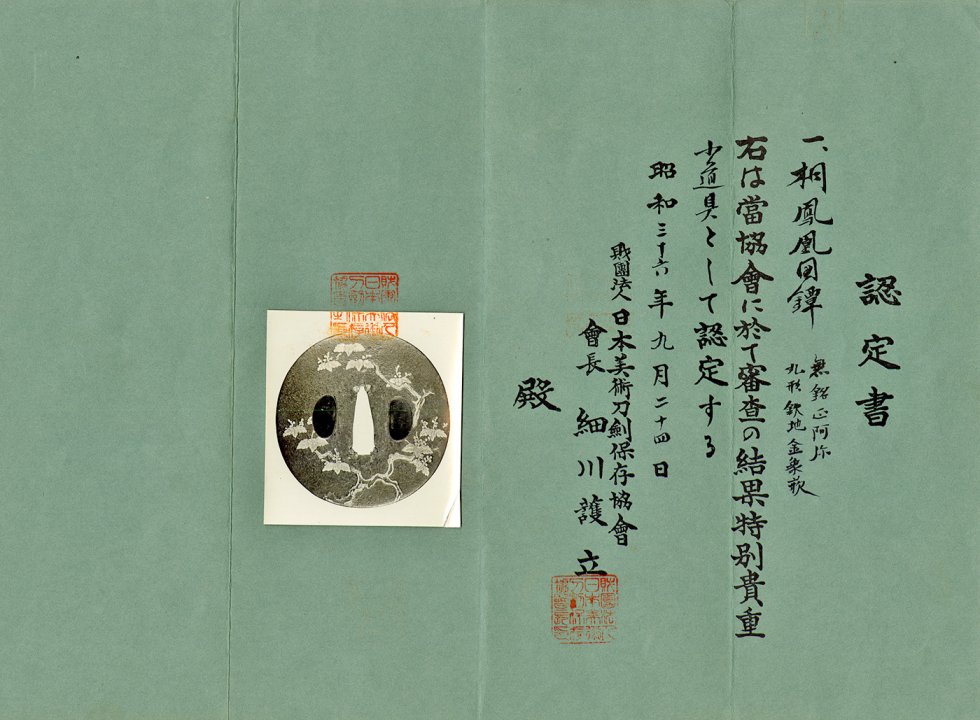 認定書
一、桐鳳凰図鐔
無銘 正阿弥
丸形 鉄地 金象嵌
右は當協會に於て審査の結果特別貴重
小道具として認定する
昭和三十六年九月二十四日
財團法人日本美術刀劍保存協會
會長 細川護立
殿